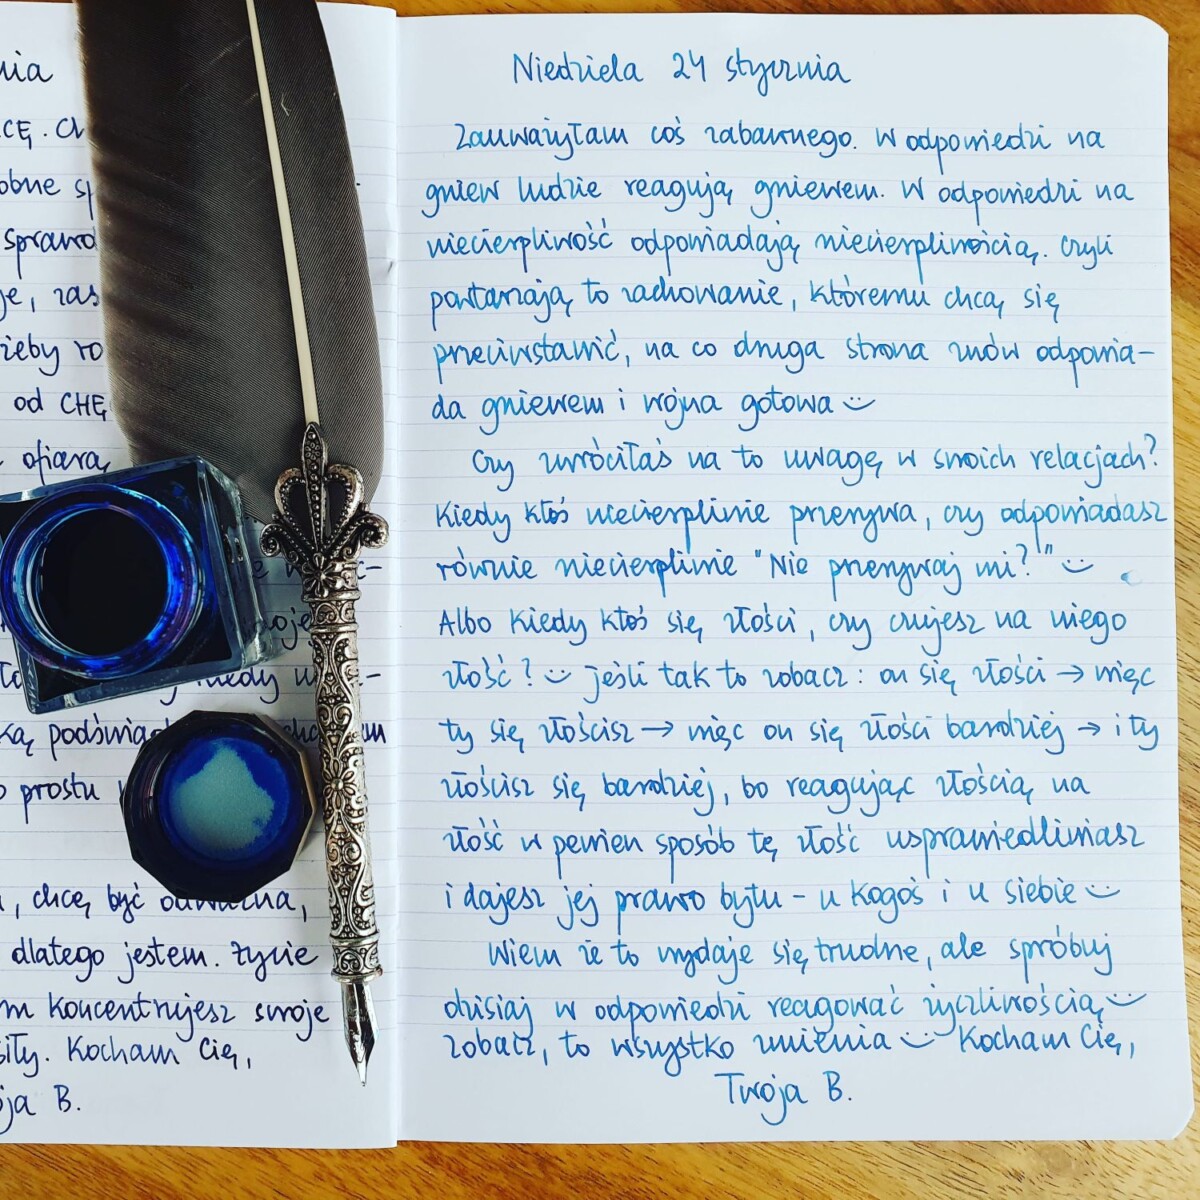 nia
CĘ. Ch
obne sp
sprawd
je, zas
żeby ro
od CHĘ
ofiarą
kiedy
ką podświad
o prostu
, chcę być odważna,
dlatego jestem. Życie
m koncentrujesz swoje
siły. Kocham Cię,
ja B.
Niedziela 24 stycznia
Zauważyłam coś zabawnego. W odpowiedzi na
gniew ludzie reagują gniewem. W odpowiedzi na
niecierpliwość odpowiadają niecierpliwością. Czyli
powtarzają to zachowanie, któremu chcą się
przeciwstawić, na co druga strona znów odpowia-
da gniewem i wojna gotowa
Czy zwróciłaś na to uwagę w swoich relacjach?
Kiedy ktoś niecierpliwie przerywa, czy odpowiadasz
równie niecierpliwie "Nie przerywaj mi?"
Albo kiedy ktoś się złości, czy czujesz na niego
złość? Jeśli tak to zobacz: on się złości → więc
ty się złościsz → więc on się złości bardziej → i ty
złościsz się bardziej, bo reagując złością na
złość w pewien sposób tę złość usprawiedliwiasz
i dajesz jej prawo bytu - u kogoś i u siebie
Wiem że to wydaje się trudne, ale spróbuj
dzisiaj w odpowiedzi reagować życzliwością
zobacz, to wszystko zmienia Kocham Cię,
Twoja B.